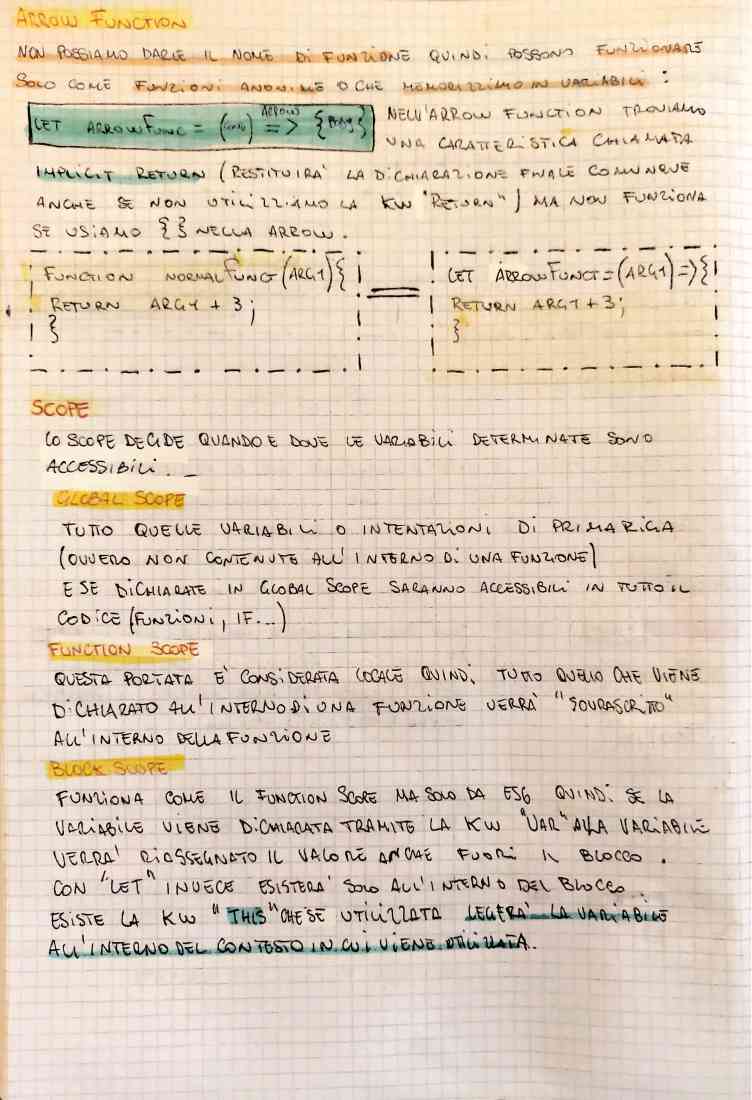 ARROW FUNCTION
NON POSSIAMO DARLE IL NOME DI FUNZIONE QUINDI POSSONO FUNZIONARE
SOLO COME FUNZIONI ANONIME O CHE MEMORIZZIMO IN VARIABILI :
LET ARROWFUNC = ( ) ARROW => { BODY }
NELL'ARROW FUNCTION TROVIAMO
UNA CARATTERISTICA CHIAMATA
IMPLICIT RETURN (RESTITUIRA' LA DICHIARAZIONE FINALE COMUNQUE
ANCHE SE NON UTILIZZIAMO LA KW "RETURN") MA NON FUNZIONA
SE USIAMO { } NELLA ARROW.
FUNCTION NORMALFUNCT(ARG1){
RETURN ARG1 + 3;
}
=
LET ARROWFUNCT=(ARG1)=>{
RETURN ARG1+3;
}
SCOPE
LO SCOPE DECIDE QUANDO E DOVE LE VARIABILI DETERMINATE SONO
ACCESSIBILI.
GLOBAL SCOPE
TUTTO QUELLE VARIABILI O INTENTAZIONI DI PRIMA RIGA
(OVVERO NON CONTENUTE ALL'INTERNO DI UNA FUNZIONE)
E SE DICHIARATE IN GLOBAL SCOPE SARANNO ACCESSIBILI IN TUTTO IL
CODICE (FUNZIONI, IF...)
FUNCTION SCOPE
QUESTA PORTATA E' CONSIDERATA LOCALE QUINDI TUTTO QUELLO CHE VIENE
DICHIARATO ALL'INTERNO DI UNA FUNZIONE VERRA' "SOVRASCRITTO"
ALL'INTERNO DELLA FUNZIONE
BLOCK SCOPE
FUNZIONA COME IL FUNCTION SCOPE MA SOLO DA ES6 QUINDI SE LA
VARIABILE VIENE DICHIARATA TRAMITE LA KW "VAR" ALLA VARIABILE
VERRA' RIASSEGNATO IL VALORE ANCHE FUORI IL BLOCCO.
CON "LET" INVECE ESISTERA' SOLO ALL'INTERNO DEL BLOCCO.
ESISTE LA KW "THIS" CHE SE UTILIZZATA LEGERA' LA VARIABILE
ALL'INTERNO DEL CONTESTO IN CUI VIENE UTILIZZATA.